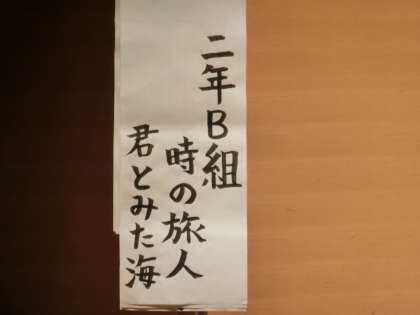 二年B組
時の旅人
君とみた海